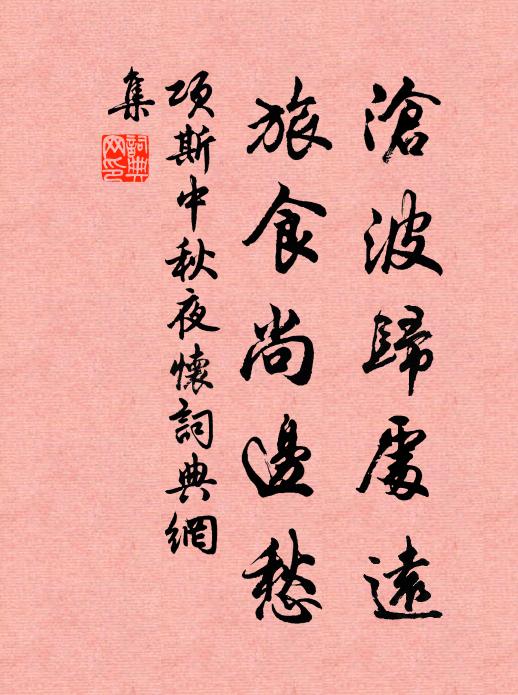 滄波歸處遠
旅食尚邊愁
項斯中秋夜懷詞典網
集
詞典
網印